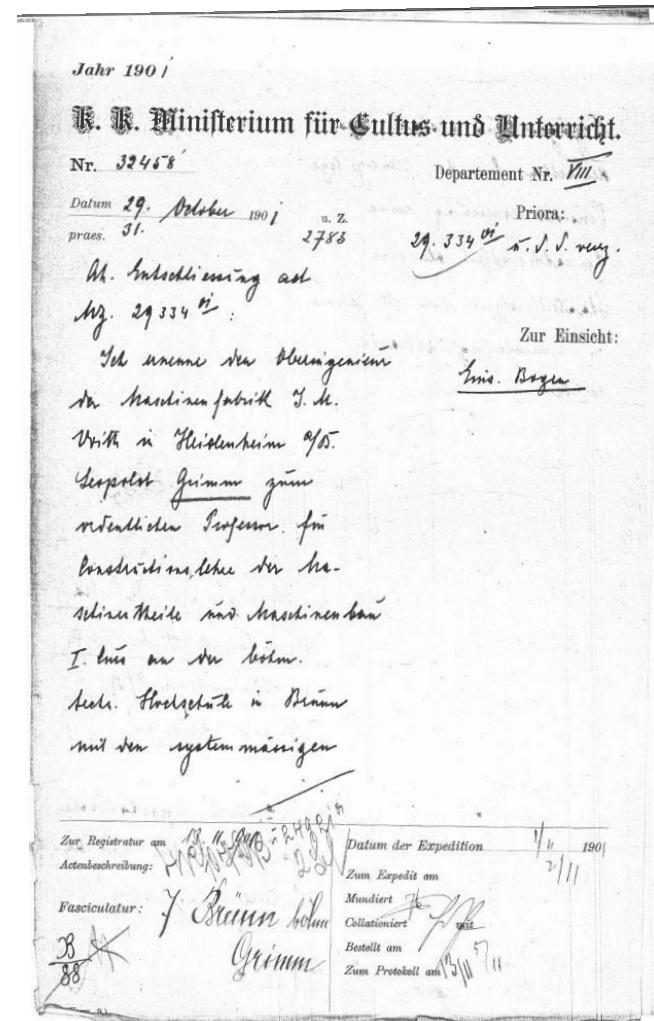 Jahr 1901
K. K. Ministerium für Cultus und Unterricht.
Nr. 32458
Departement Nr. VIII
Datum 29. October 1901
praes. 31.
u. Z.
2783
Priora:
29.334 VI u.
Ah. Entschliessung ad
Mz. 29334 VI:
Zur Einsicht:
Ich ernenne den Oberingenieur
Eins. Bogen
der Maschinenfabrik J. M.
Voith in Heidenheim a/B.
Leopold Grimm zum
ordentlichen Professor für
Constructionslehre der Ma-
schinentheile und Maschinenbau
I. Curs an der böhm.
techn. Hochschule in Brünn
mit den systemmässigen
Zur Registratur am
Actenbeschreibung:
Fasciculatur: 7 Brünn böhm
Grimm
B
88
Datum der Expedition 1/11 1901
Zum Expedit am 2/11
Mundiert
Collationiert mit
Bestellt am 5/11
Zum Protokoll am 13/11